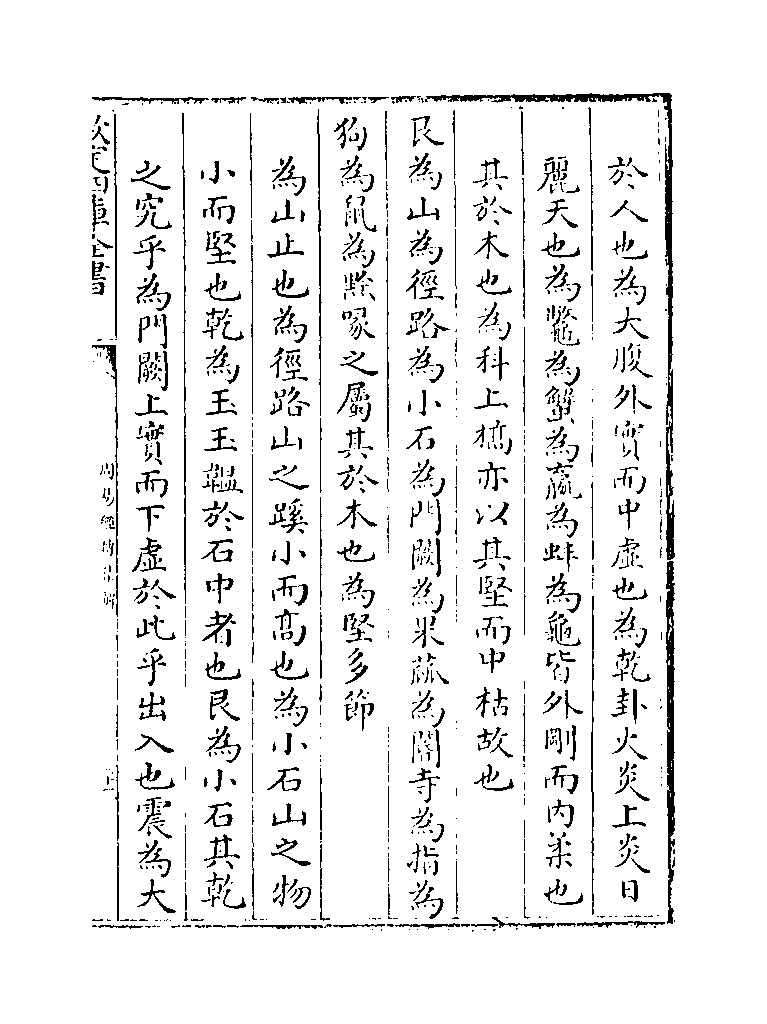 於人也為大腹外實而中虛也為乾卦火炎上炎日
麗天也為鼈為蟹為蠃為蚌為龜皆外剛而内柔也
其於木也為科上槁亦以其堅而中枯故也
艮為山為徑路為小石為門闕為果蓏為閽寺為指為
狗為鼠為黔喙之屬其於木也為堅多節
為山止也為徑路山之蹊小而高也為小石山之物
小而堅也乾為玉玉韞於石中者也艮為小石其乾
之究乎為門闕上實而下虛於此乎出入也震為大
欽定四庫全書
周易經傳集解